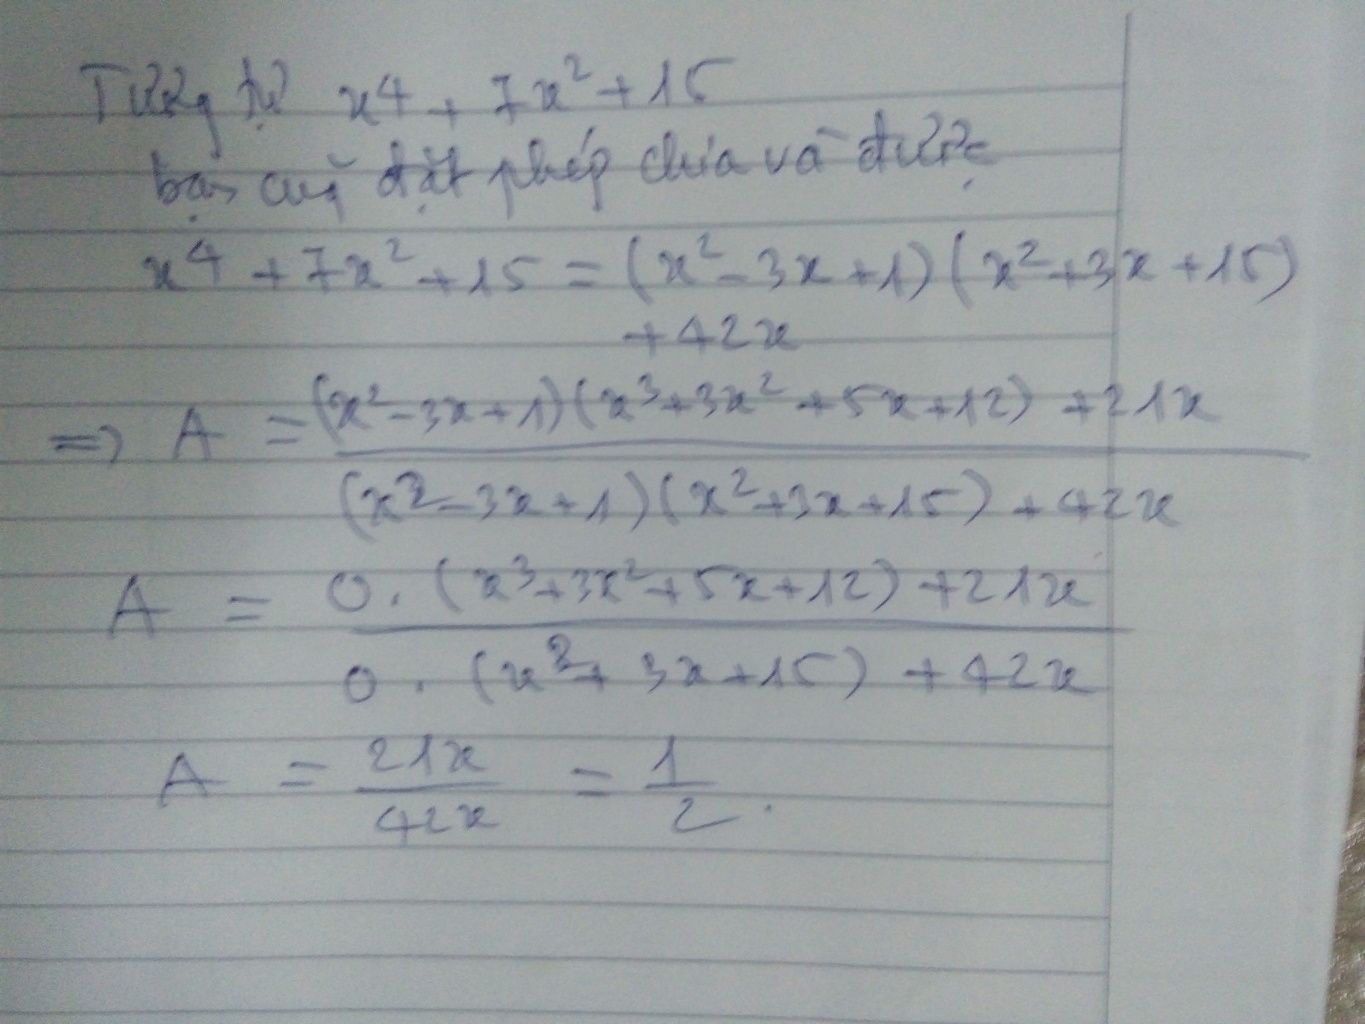 Tương tự x⁴ + 7x² + 15
bạn cũg đặt phép chia và được
x⁴ + 7x² + 15 = (x² - 3x + 1)(x² + 3x + 15)
+ 42x
=> A = (x² - 3x + 1)(x³ + 3x² + 5x + 12) + 21x
(x² - 3x + 1)(x² + 3x + 15) + 42x
A = 0. (x³ + 3x² + 5x + 12) + 21x
0. (x² + 3x + 15) + 42x
A = 21x / 42x = 1 / 2.